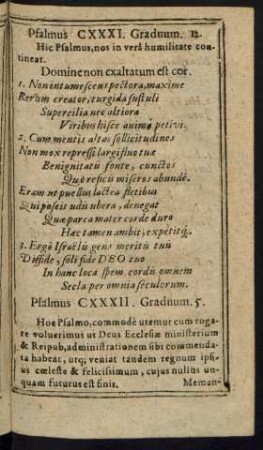 Psalmus CXXXI. Graduum. 12.
Hic Psalmus, nos in verâ humilitate con-
tineat.
Domine non exaltatum est cor.
1. Non intumescens pectora, maxime
Rerum creator, turgida sustuli
Supercilia nec altiora
Viribus hisce animô petivi.
2. Cum mentis altas sollicitudines
Non mox repressi largifluo tuæ
Benignitatis fonte, cunctos
Quô reficis miseros abundè.
Eram ut puellus lactea fletibus
Qui poscit udis ubera, denegat
Quæ parca mater corde duro
Hæc tamen ambit, expetitq;.
3. Ergô Israëlis gens meritis tuis
Diffide, soli fide DEO tuo
In hanc loca spem cordis omnem
Secla per omnia seculorum.
Psalmus CXXXII. Graduum. 5.
Hoc Psalmo, commodè utemur cum roga-
re voluerimus ut Deus Ecclesiæ ministerium
& Reipub, administrationem sibi commenda-
ta habeat, utq; veniat tandem regnum ipsi-
us cœleste & felicissimum, cujus nullus un-
quam futurus est finis. Memen-